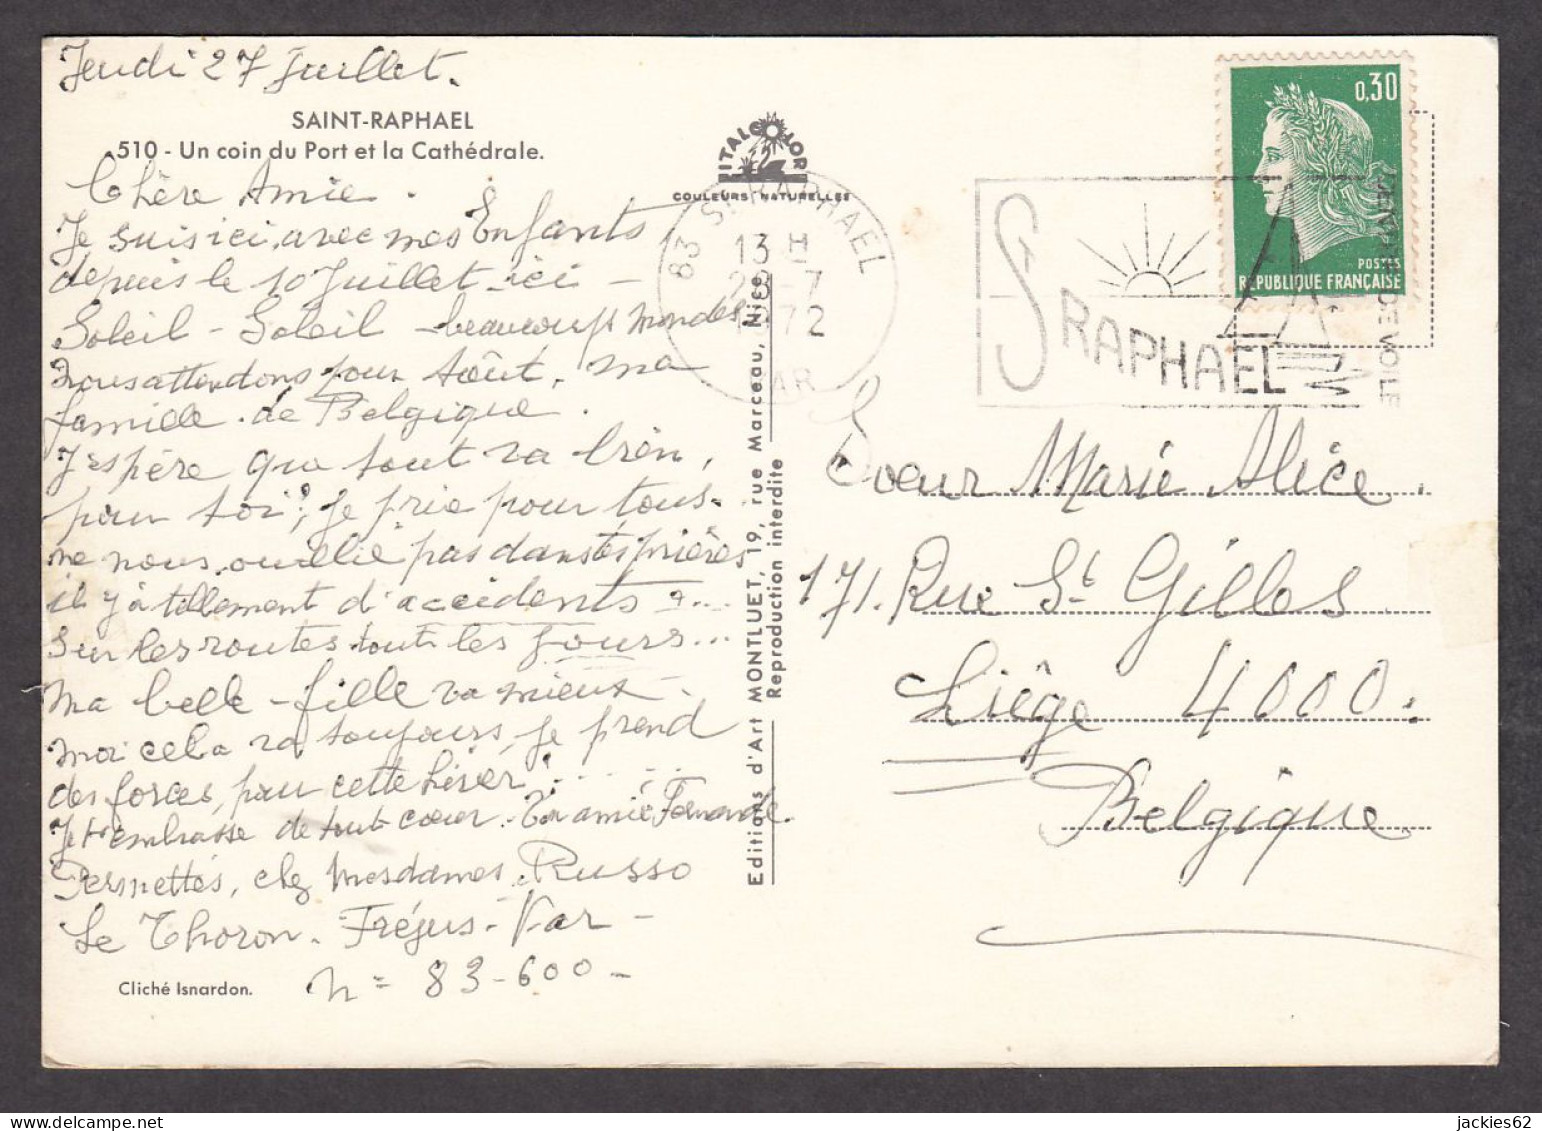 Jeudi 27 Juillet.
SAINT-RAPHAEL
510 - Un coin du Port et la Cathédrale.
Chère Amie.
Je suis ici, avec mes Enfants,
depuis le 10 Juillet ici -
Soleil - Soleil - beaucoup mondes
nous attendons pour Août, ma
famille de Belgique.
J'espère que tout va bien,
pour toi?, je prie pour tous.
ne nous oublie pas dans tes prières
il y à tellement d'accidents
sur les routes tout les jours...
Ma belle-fille va mieux -
moi cela va toujours, je prend
des forces, pour cette hiver!......
Je t'embrasse de tout coeur. Ton amie Fernande.
chez Mesdames Russo
Le Thoron. Fréjus. Var -
n= 83-600 -
Cliché Isnardon.
ITALCOLOR
COULEURS NATURELLES
Editions d'Art MONTLUET, 19, rue Marceau, Nice
Reproduction interdite
83 ST RAPHAEL
13 H
28 -7
1972
VAR
0,30
POSTES
REPUBLIQUE FRANÇAISE
ST RAPHAEL
DE VOILE
Soeur Marie Alice.
171. Rue St Gilles
Liège 4000.
Belgique
jackies62